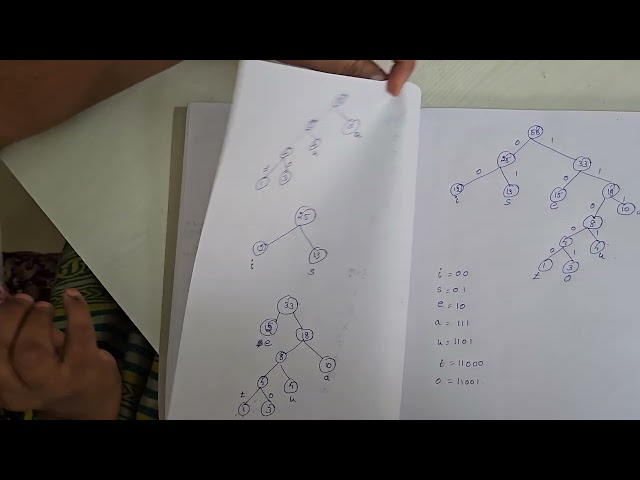 25
12
13
i
s
33
15
e
18
8
10
a
4
4
u
t
o
1
3
58
0
1
25
33
0
1
0
1
12
13
15
18
i
s
e
0
1
8
10
0
1
4
4
u
0
1
1
3
t
o
i = 00
s = 01
e = 10
a = 111
u = 1101
t = 11000
o = 11001